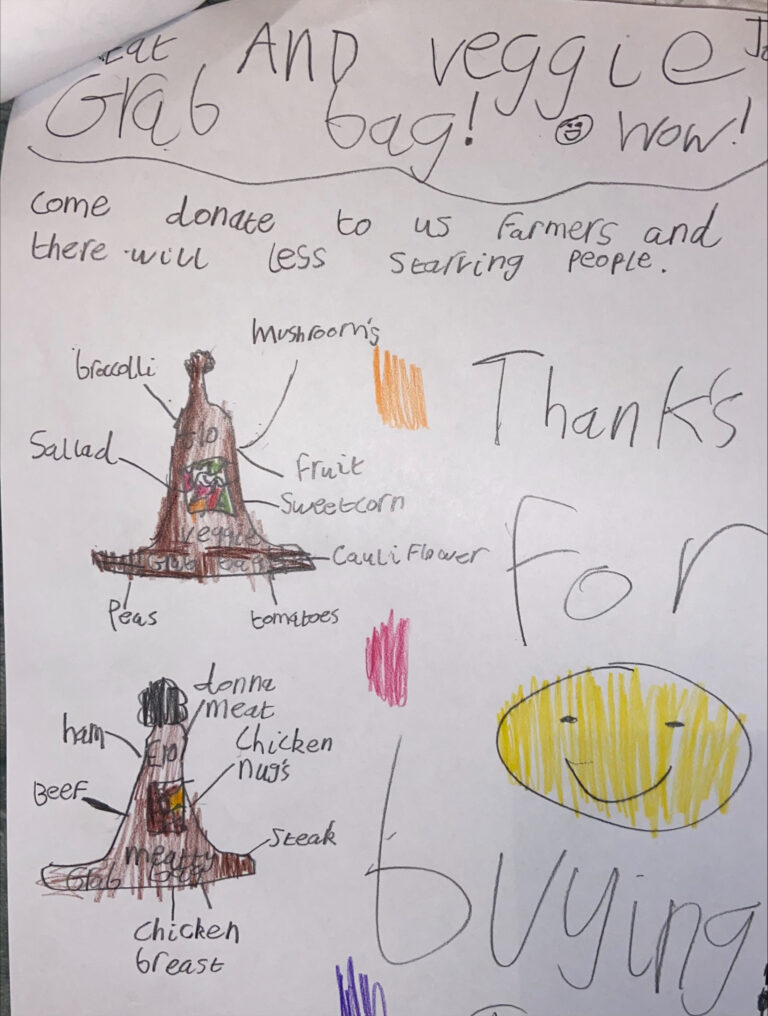 eat AND veggie
Grab bag! wow!
come donate to us Farmers and
there will less starving people.
mushroom's
broccolli
Sallad
£10
Fruit
Sweetcorn
veggie
Grab bag
CauliFlower
Peas
tomatoes
Thank's
For
buying
donna
meat
ham
£10
Chicken
nug's
BeeF
Steak
meatty
Grab bag
chicken
breast